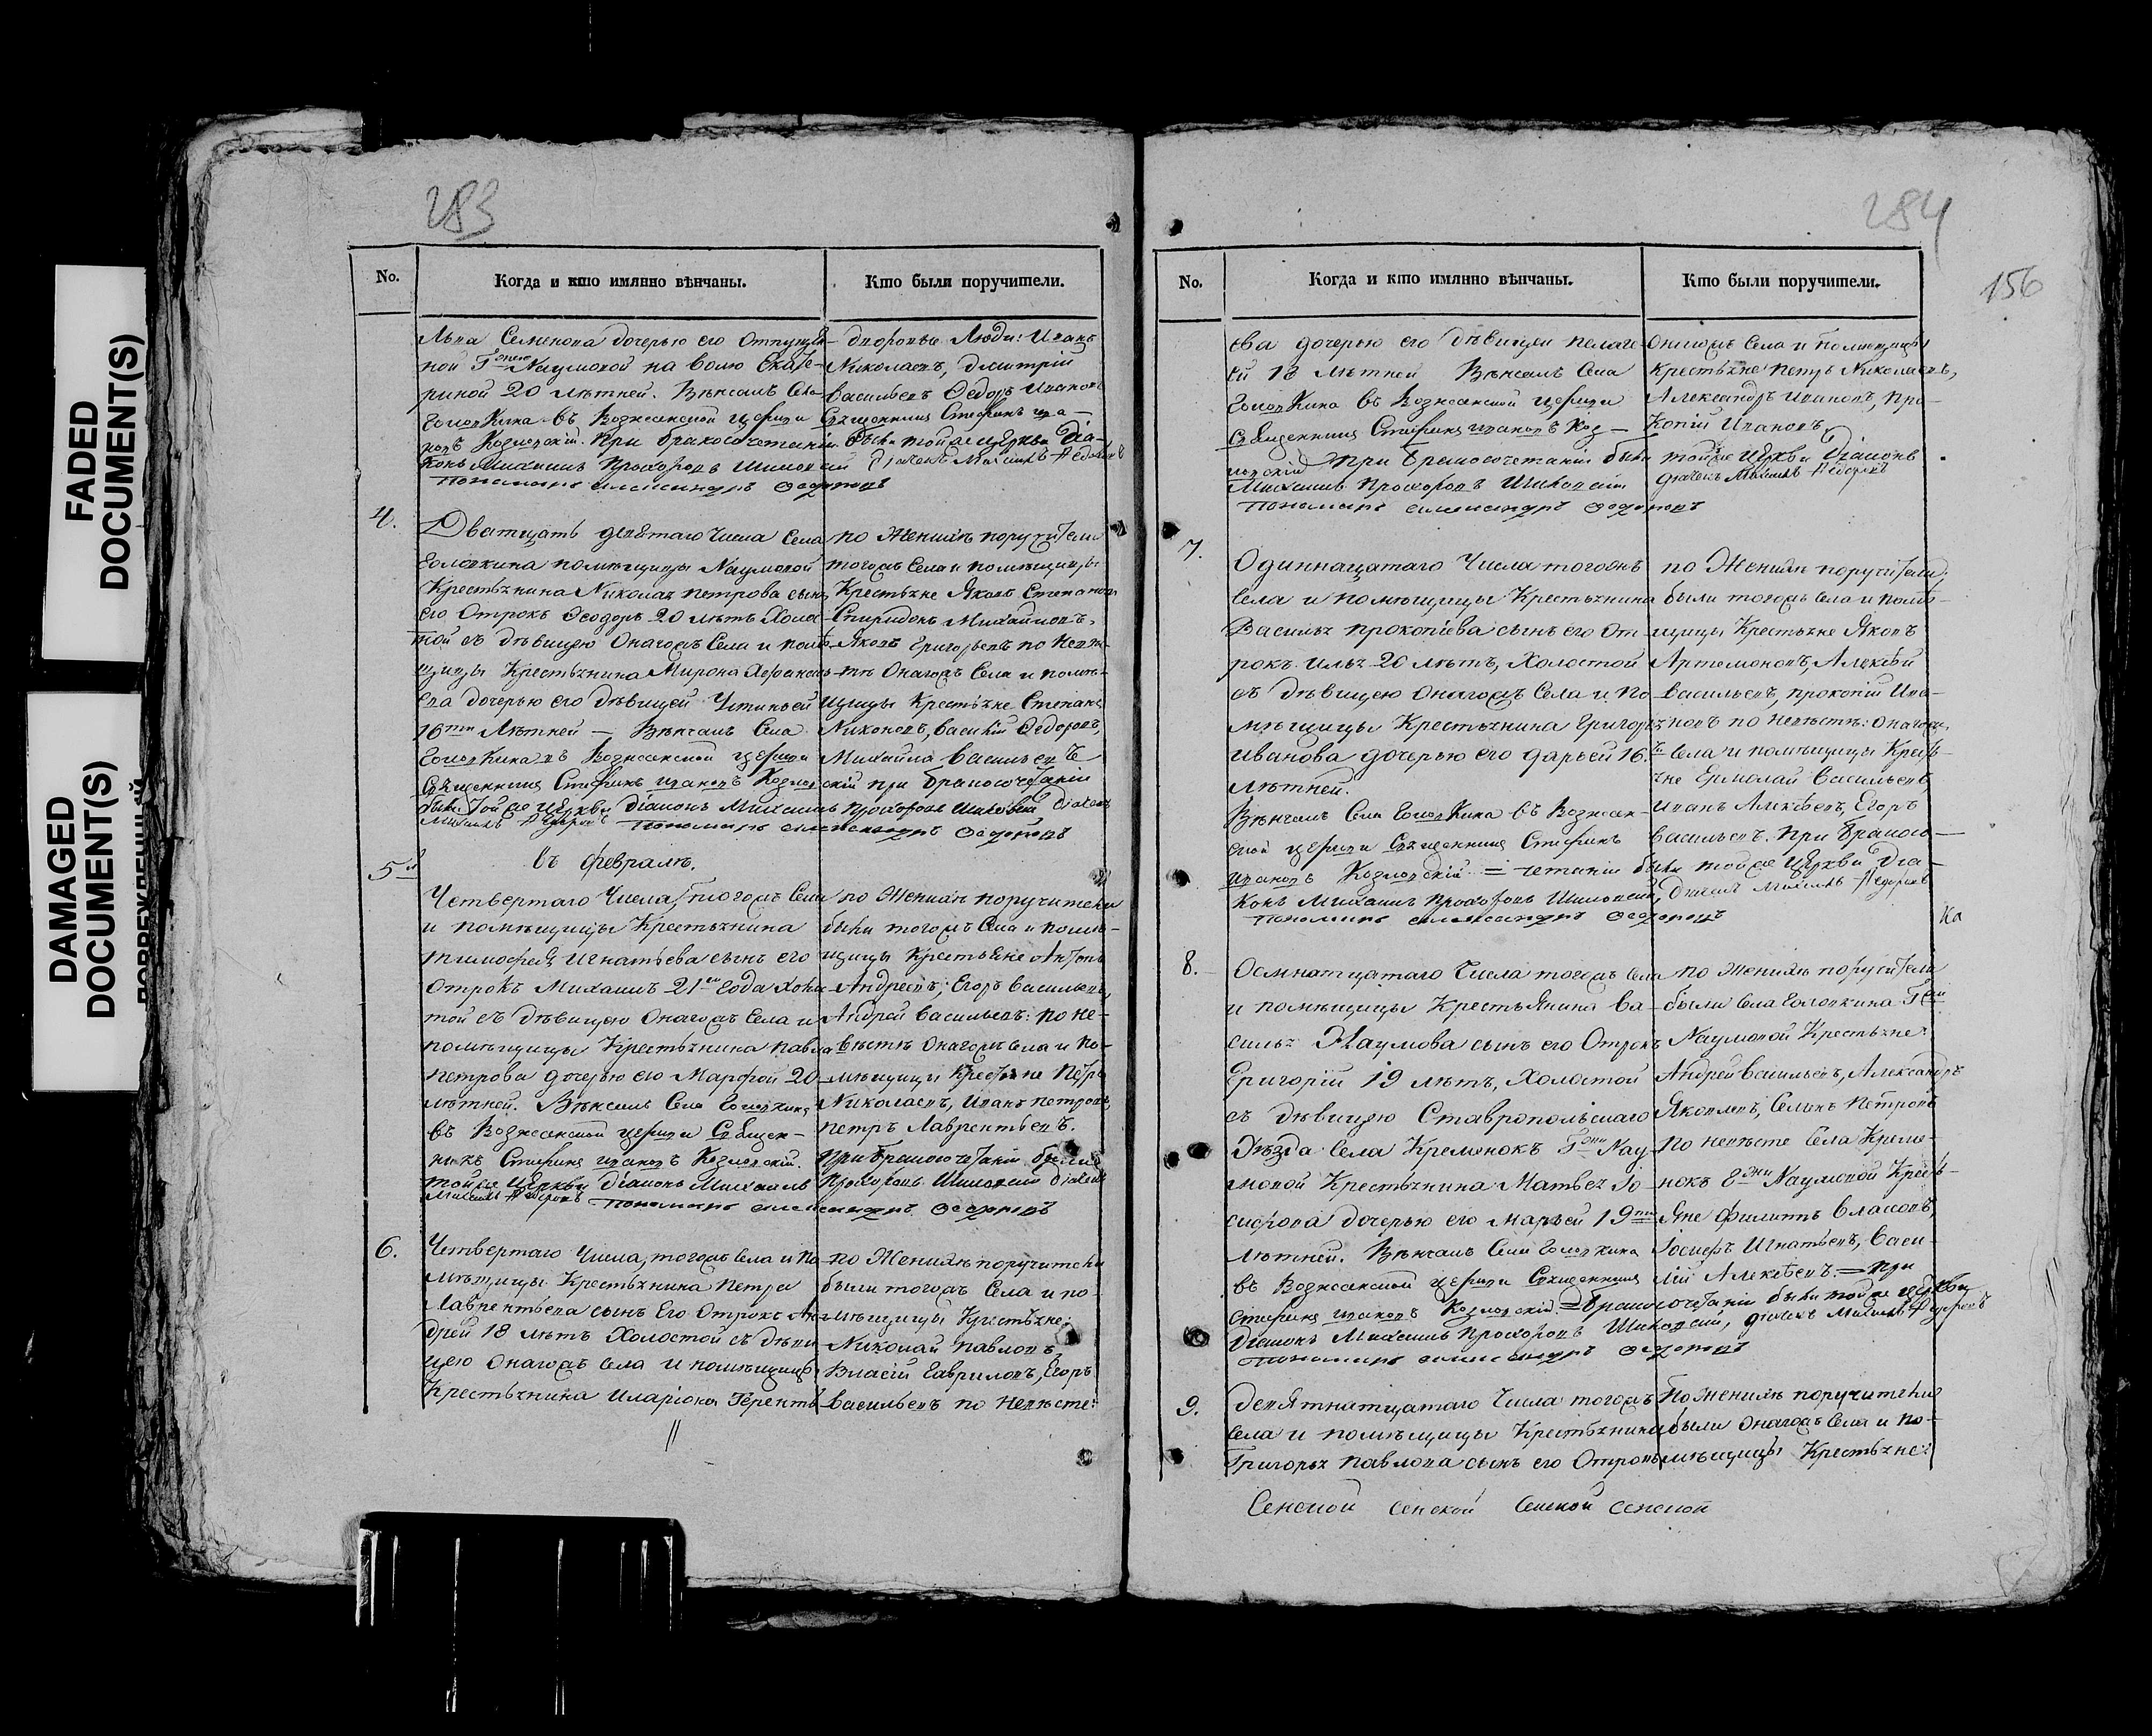 FADED
DOCUMENT(S)
DAMAGED
DOCUMENT(S)
283
No.
Когда и кто имянно вѣнчаны.
Кто были поручители.
Льва Семенова дочерью его Отпущен-
ной Гжею Наумовой на волю Екате-
риной 20 лѣтней. Вѣнчалъ Села
Головкина въ Вознесенской церкви Священникъ Стефанъ Ива-
новъ Козловскій. При бракосочетаніи были тойже церкви Діа-
конъ Михаилъ Прохоровъ Дьячекъ Михаилъ Федоровъ
Пономарь Александръ Федоровъ
дворовые Люди: Иванъ
Николаевъ, Дмитрій
Васильевъ Федоръ Ивановъ
4.
Дватцать девятаго Числа Села
Головкина помѣщицы Наумовой
Крестьянина Николая Петрова сынъ
его Отрокъ Феодоръ 20 лѣтъ Холос-
той съ дѣвицею Онагожъ Села и помѣ-
щицы Крестьянина Мирона Афанась-
ева дочерью его дѣвицей Устиньей
16ти Лѣтней — Вѣнчалъ Села
Головкина въ Вознесенской церкви
Священникъ Стефанъ Ивановъ Козловскій при бракосочетаніи
были Тойже церкви Діаконъ Михаилъ Прохоровъ Дьячекъ
Михаилъ Федоровъ Пономарь Александръ Федоровъ
по Женихѣ поручители
тогожъ Села и помѣщицы
Крестьяне Яковъ Степановъ
Спиридонъ Михайловъ,
Яковъ Григорьевъ по Невѣ-
стѣ Онагожъ Села и помѣ-
щицы Крестьяне Степанъ
Никоновъ, Василій Федоровъ,
Михайла Васильевъ
5й
въ Февралѣ.
Четвертаго Числа тогожъ Села
и помѣщицы Крестьянина
Тимофея Игнатьева сынъ его
Отрокъ Михаилъ 21го Года Холос-
той съ дѣвицею Онагожъ Села и
помѣщицы Крестьянина Павла
Петрова дочерью его Марфой 20
лѣтней. Вѣнчалъ Села Головкина
въ Вознесенской церкви Священ-
никъ Стефанъ Ивановъ Козловскій. При бракосочетаніи были
тойже Церкви Діаконъ Михаилъ Прохоровъ Дьячекъ
Михаилъ Федоровъ Пономарь Александръ Федоровъ
по Женихѣ поручители
были тогожъ Села и помѣ-
щицы Крестьяне Антонъ
Андреевъ, Егоръ Васильевъ,
Андрей Васильевъ: по не-
вѣстѣ Онагожъ Села и по-
мѣщицы Крестьяне Петръ
Николаевъ, Иванъ Петровъ,
Петръ Лаврентьевъ.
6.
Четвертаго Числа, тогожъ Села и по-
мѣщицы Крестьянина Петра
Лаврентьева сынъ Его Отрокъ Ан-
дрей 18 лѣтъ Холостой съ дѣви-
цею Онагожъ Села и помѣщицы
Крестьянина Иларіона Теренть-
по Женихѣ поручители
были тогожъ Села и по-
мѣщицы Крестьяне:
Николай Павловъ,
Власій Гавриловъ, Егоръ
Васильевъ по Невѣсте:
284
156
No.
Когда и кто имянно вѣнчаны.
Кто были поручители.
ева дочерью его дѣвицей Пелаге-
ей 18 Лѣтней Вѣнчалъ Села
Головкина въ Вознесенской церкви
Священникъ Стефанъ Ивановъ Коз-
ловскій при бракосочетаніи были тойже Церкви Діаконъ
Михаилъ Прохоровъ Дьячекъ Михаилъ Федоровъ
Пономарь Александръ Федоровъ
Онагожъ Села и помѣщицы
Крестьяне Петръ Николаевъ,
Александръ Ивановъ, Про-
копій Ивановъ
7.
Одиннацатаго Числа тогожъ
Села и помѣщицы Крестьянина
Василья Прокопіева сынъ его От-
рокъ Илья 20 лѣтъ, Холостой
съ дѣвицею Онагожъ Села и По-
мѣщицы Крестьянина Григорья
Иванова дочерью его Дарьей 16.ть
лѣтней.
Вѣнчалъ Села Головкина въ Вознесен-
ской церкви Священникъ Стефанъ
Ивановъ Козловскій = четаніи были тойже Церкви Діа-
конъ Михаилъ Прохоровъ Дьячекъ Михаилъ Федоровъ
Пономарь Александръ Федоровъ
по Женихѣ поручители,
были тогожъ Села и помѣ-
щицы Крестьяне Яковъ
Артемоновъ, Алексѣй
Васильевъ, Прокопій Ива-
новъ по Невѣстѣ: Онагожъ
Села и помѣщицы Кресть-
яне Ермолай Васильевъ
Иванъ Алексѣевъ, Егоръ
Васильевъ. При бракосо-
ка
8.
Осмнатцатаго Числа тогожъ Села
и помѣщицы Крестьянина Ва-
силья Наумова сынъ его Отрокъ
Григорій 19 лѣтъ, Холостой
съ дѣвицею Ставропольскаго
Уѣзда Села Кременокъ Гжи Нау-
мовой Крестьянина Матвея Іо-
сифова дочерью его Марьей 19ти
лѣтней. Вѣнчалъ Села Головкина
въ Вознесенской церкви Священникъ
Стефанъ Ивановъ Козловскій = бракосочетаніи были тойже церкви
Діаконъ Михаилъ Прохоровъ Дьячекъ Михаилъ Федоровъ
Пономарь Александръ Федоровъ
по Женихѣ поручители
были Села Головкина Гжи
Наумовой Крестьяне:
Андрей Васильевъ, Александръ
Яковлевъ, Семенъ Петровъ
по невѣсте Села Креме-
нокъ Гжи Наумовой Кресть-
яне Филиппъ Власовъ,
Іосифъ Игнатьевъ, Васи-
лій Алексѣевъ. = При
9.
Девятнатцатаго Числа тогожъ
Села и помѣщицы Крестьянина
Григорья Павлова сынъ его Отрокъ
По Женихѣ поручители
были Онагожъ Села и по-
мѣщицы Крестьяне:
Сенской сенской Сенской сенской